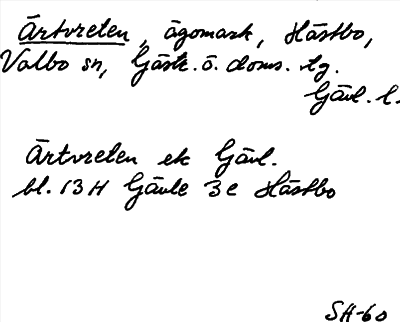 Ärtvreten, ägomark, Hästbo,
Valbo sn, Gästr. ö. doms. tg.
Gävl. l.
Ärtvreten ek Gävl.
bl. 13 H Gävle 3 e Hästbo
SH-60